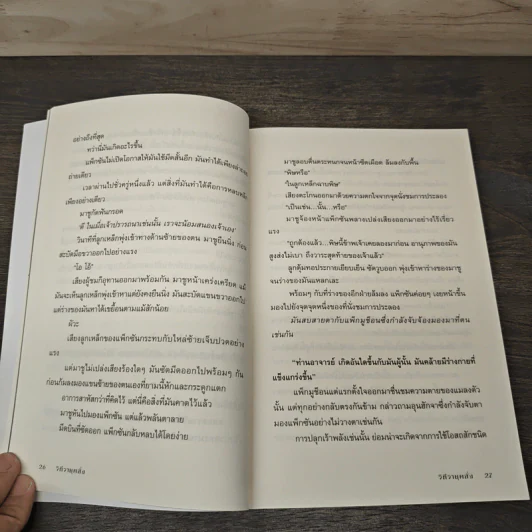 อย่างถึงที่สุด
ทว่านี่มันเกิดอะไรขึ้น
แพ็กซันไม่เปิดโอกาสให้มันใช้มีดสั้นอีก มันทำได้เพียง
ถ่ายเดียว
เวลาผ่านไปชั่วครู่หนึ่งแล้ว แต่สิ่งที่มันทำได้คือการหลบหนี
เพียงอย่างเดียว
มาซูกัดฟันกรอด
'ดี ในเมื่อเจ้าปรารถนาเช่นนั้น เราจะน้อมสนองเจ้าเอง'
วินาทีที่ลูกเหล็กพุ่งเข้าทางด้านซ้ายของตน มาซูยืนนิ่ง ก่อน
สะบัดมือขวาออกไปอย่างแรง
"โอ โอ้"
เสียงผู้ชมก็อุทานออกมาพร้อมกัน มาซูหน้าเคร่งเครียด แม้
มันจะเห็นลูกเหล็กพุ่งเข้าหาแต่ยังคงยืนนิ่ง มันสะบัดแขนขวาออกไป
แต่ร่างของมันหาได้เขยื้อนตามแม้สักน้อย
ผัวะ
เสียงลูกเหล็กของแพ็กซันกระทบกับไหล่ซ้ายเจ็บปวดอย่าง
แรง
แต่มาซูไม่เปล่งเสียงร้องใดๆ มันซัดมีดออกไปพร้อมๆ กัน
ก่อนก้มลงมองแขนซ้ายของตนเองที่ยามนี้หักและกระดูกแตก
อาการสาหัสกว่าที่คิดไว้ แต่นี่คือสิ่งที่มันคาดไว้แล้ว
มาซูหันไปมองแพ็กซัน แต่แล้วพลันตาลาย
มีดบินที่ซัดออก แพ็กซันกลับหลบได้โดยง่าย
26 วิถีวายุสลั่ง
มาซูลอบตื่นตระหนกจนหน้าซีดเผือด ล้มลงกับพื้น
"พิษหรือ"
"ในลูกเหล็กอาบพิษ"
เสียงตะโกนออกมาด้วยความตกใจจากจุดนั่งชมการประลอง
"เป็นเช่น...นั้น...หรือ"
มาซูจ้องหน้าแพ็กซันพลางเปล่งเสียงออกมาอย่างไร้เรี่ยว
แรง
"ถูกต้องแล้ว...พิษนี้ข้าพเจ้าเคยลองมาก่อน อานุภาพของมัน
สูงส่งไม่เบา ถึงวาระสุดท้ายของเจ้าแล้ว"
ลูกตุ้มทอประกายเยียบเย็น ซัดวูบออก พุ่งเข้าหาร่างของมาซู
จนร่างของมันแหลกเละ
พร้อมๆ กับที่ร่างของอีกฝ่ายล้มลง แพ็กซันค่อยๆ เงยหน้าขึ้น
มองไปยังจุดจุดหนึ่งของที่นั่งชมการประลอง
มันสบสายตากับแพ็กมูชีอนซึ่งกำลังจับจ้องมองมาที่ตน
เช่นกัน
"ท่านอาจารย์ เกิดอันใดขึ้นกับมันผู้นั้น มันคล้ายมีร่างกายที่
แข็งแกร่งขึ้น"
แพ็กมูชีอนแต่แรกตั้งใจออกมาชื่นชมความตายของแมลงตัว
นั้น แต่ทุกอย่างกลับตรงกันข้าม กล่าวถามอุนสักจาซึ่งกำลังจับตา
มองแพ็กซันอย่างไม่วางตาเช่นกัน
การปลุกเร้าพลังเช่นนั้น ย่อมน่าจะเกิดจากการใช้โอสถสักชนิด
27